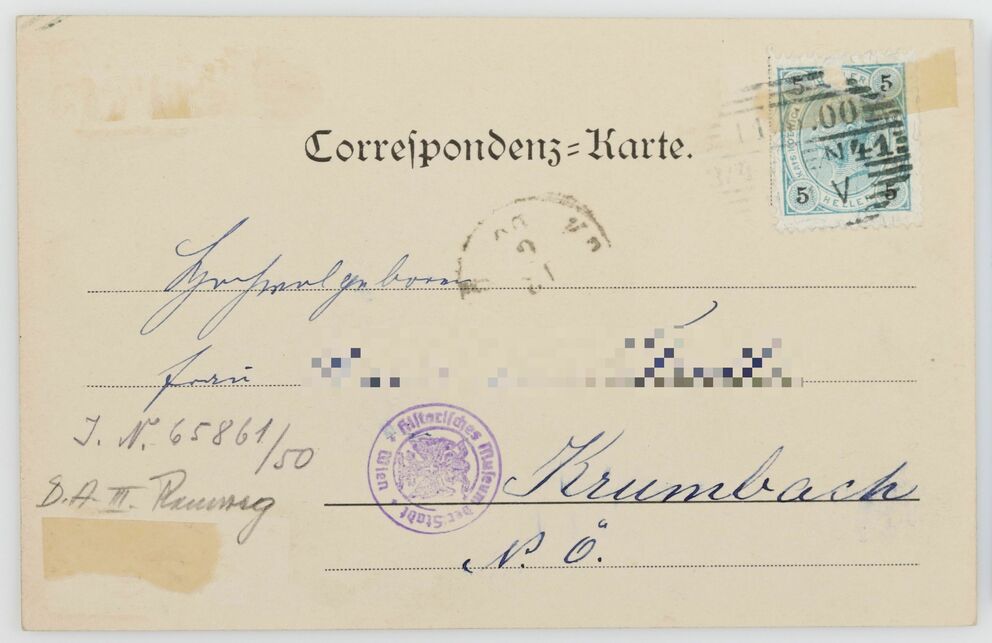 Correspondenz-Karte.
5 5
.00
N 41
V
5 HELLER 5
Hochwolgeboren
Frau
J. N. 65861/50
Krumbach
Historisches Museum der Stadt Wien
D. A. III. Rennweg
N. Ö.